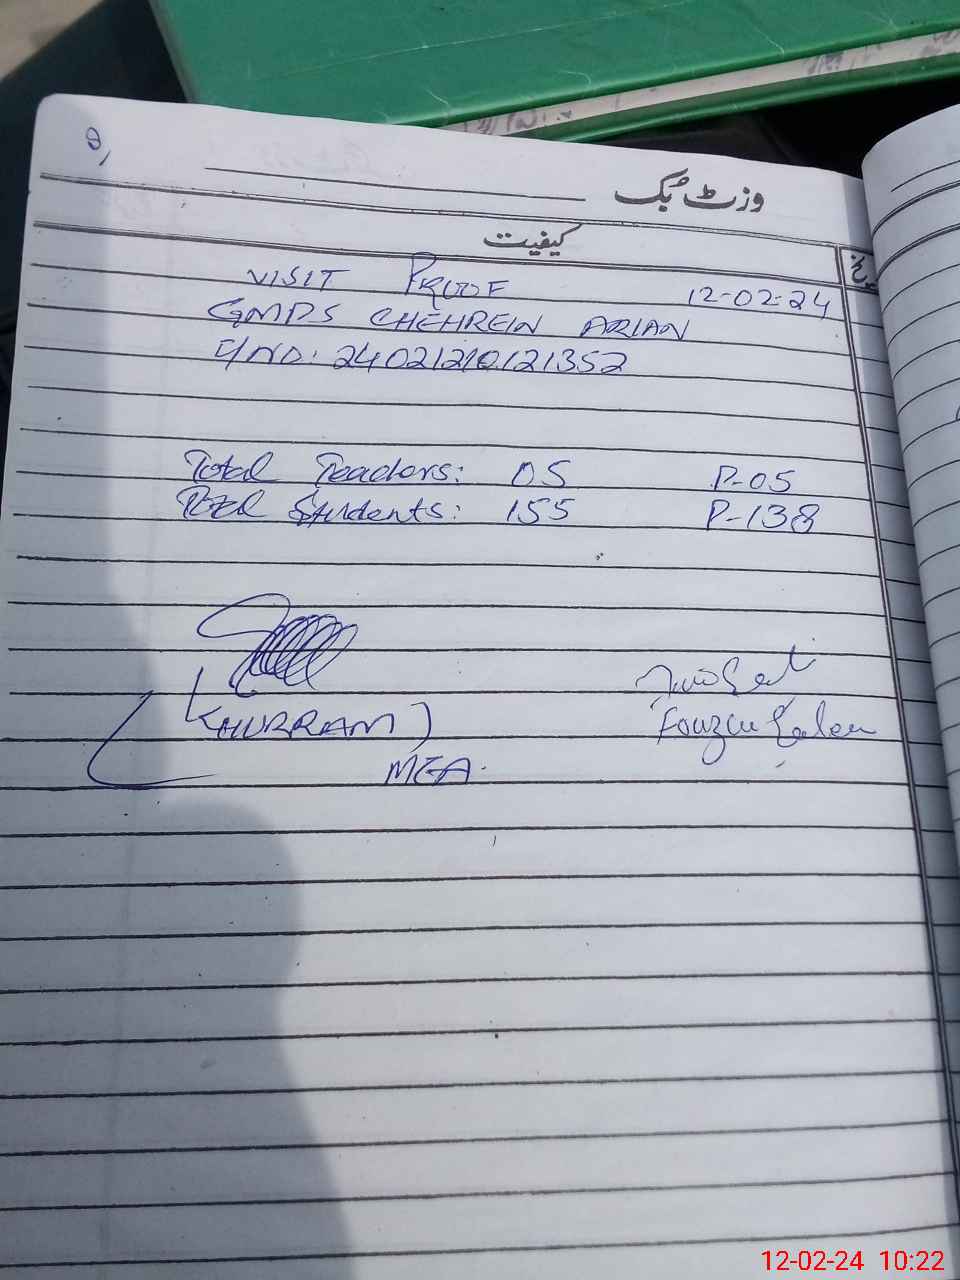 وزٹ بک
کیفیت
VISIT PROOF 12-02-24
GMPS CHEHREIN ARIAN
24021210121352
Total Teachers: 05 P-05
Total Students: 155 P-138
(KHURRAM)
MEA.
12-02-24 10:22